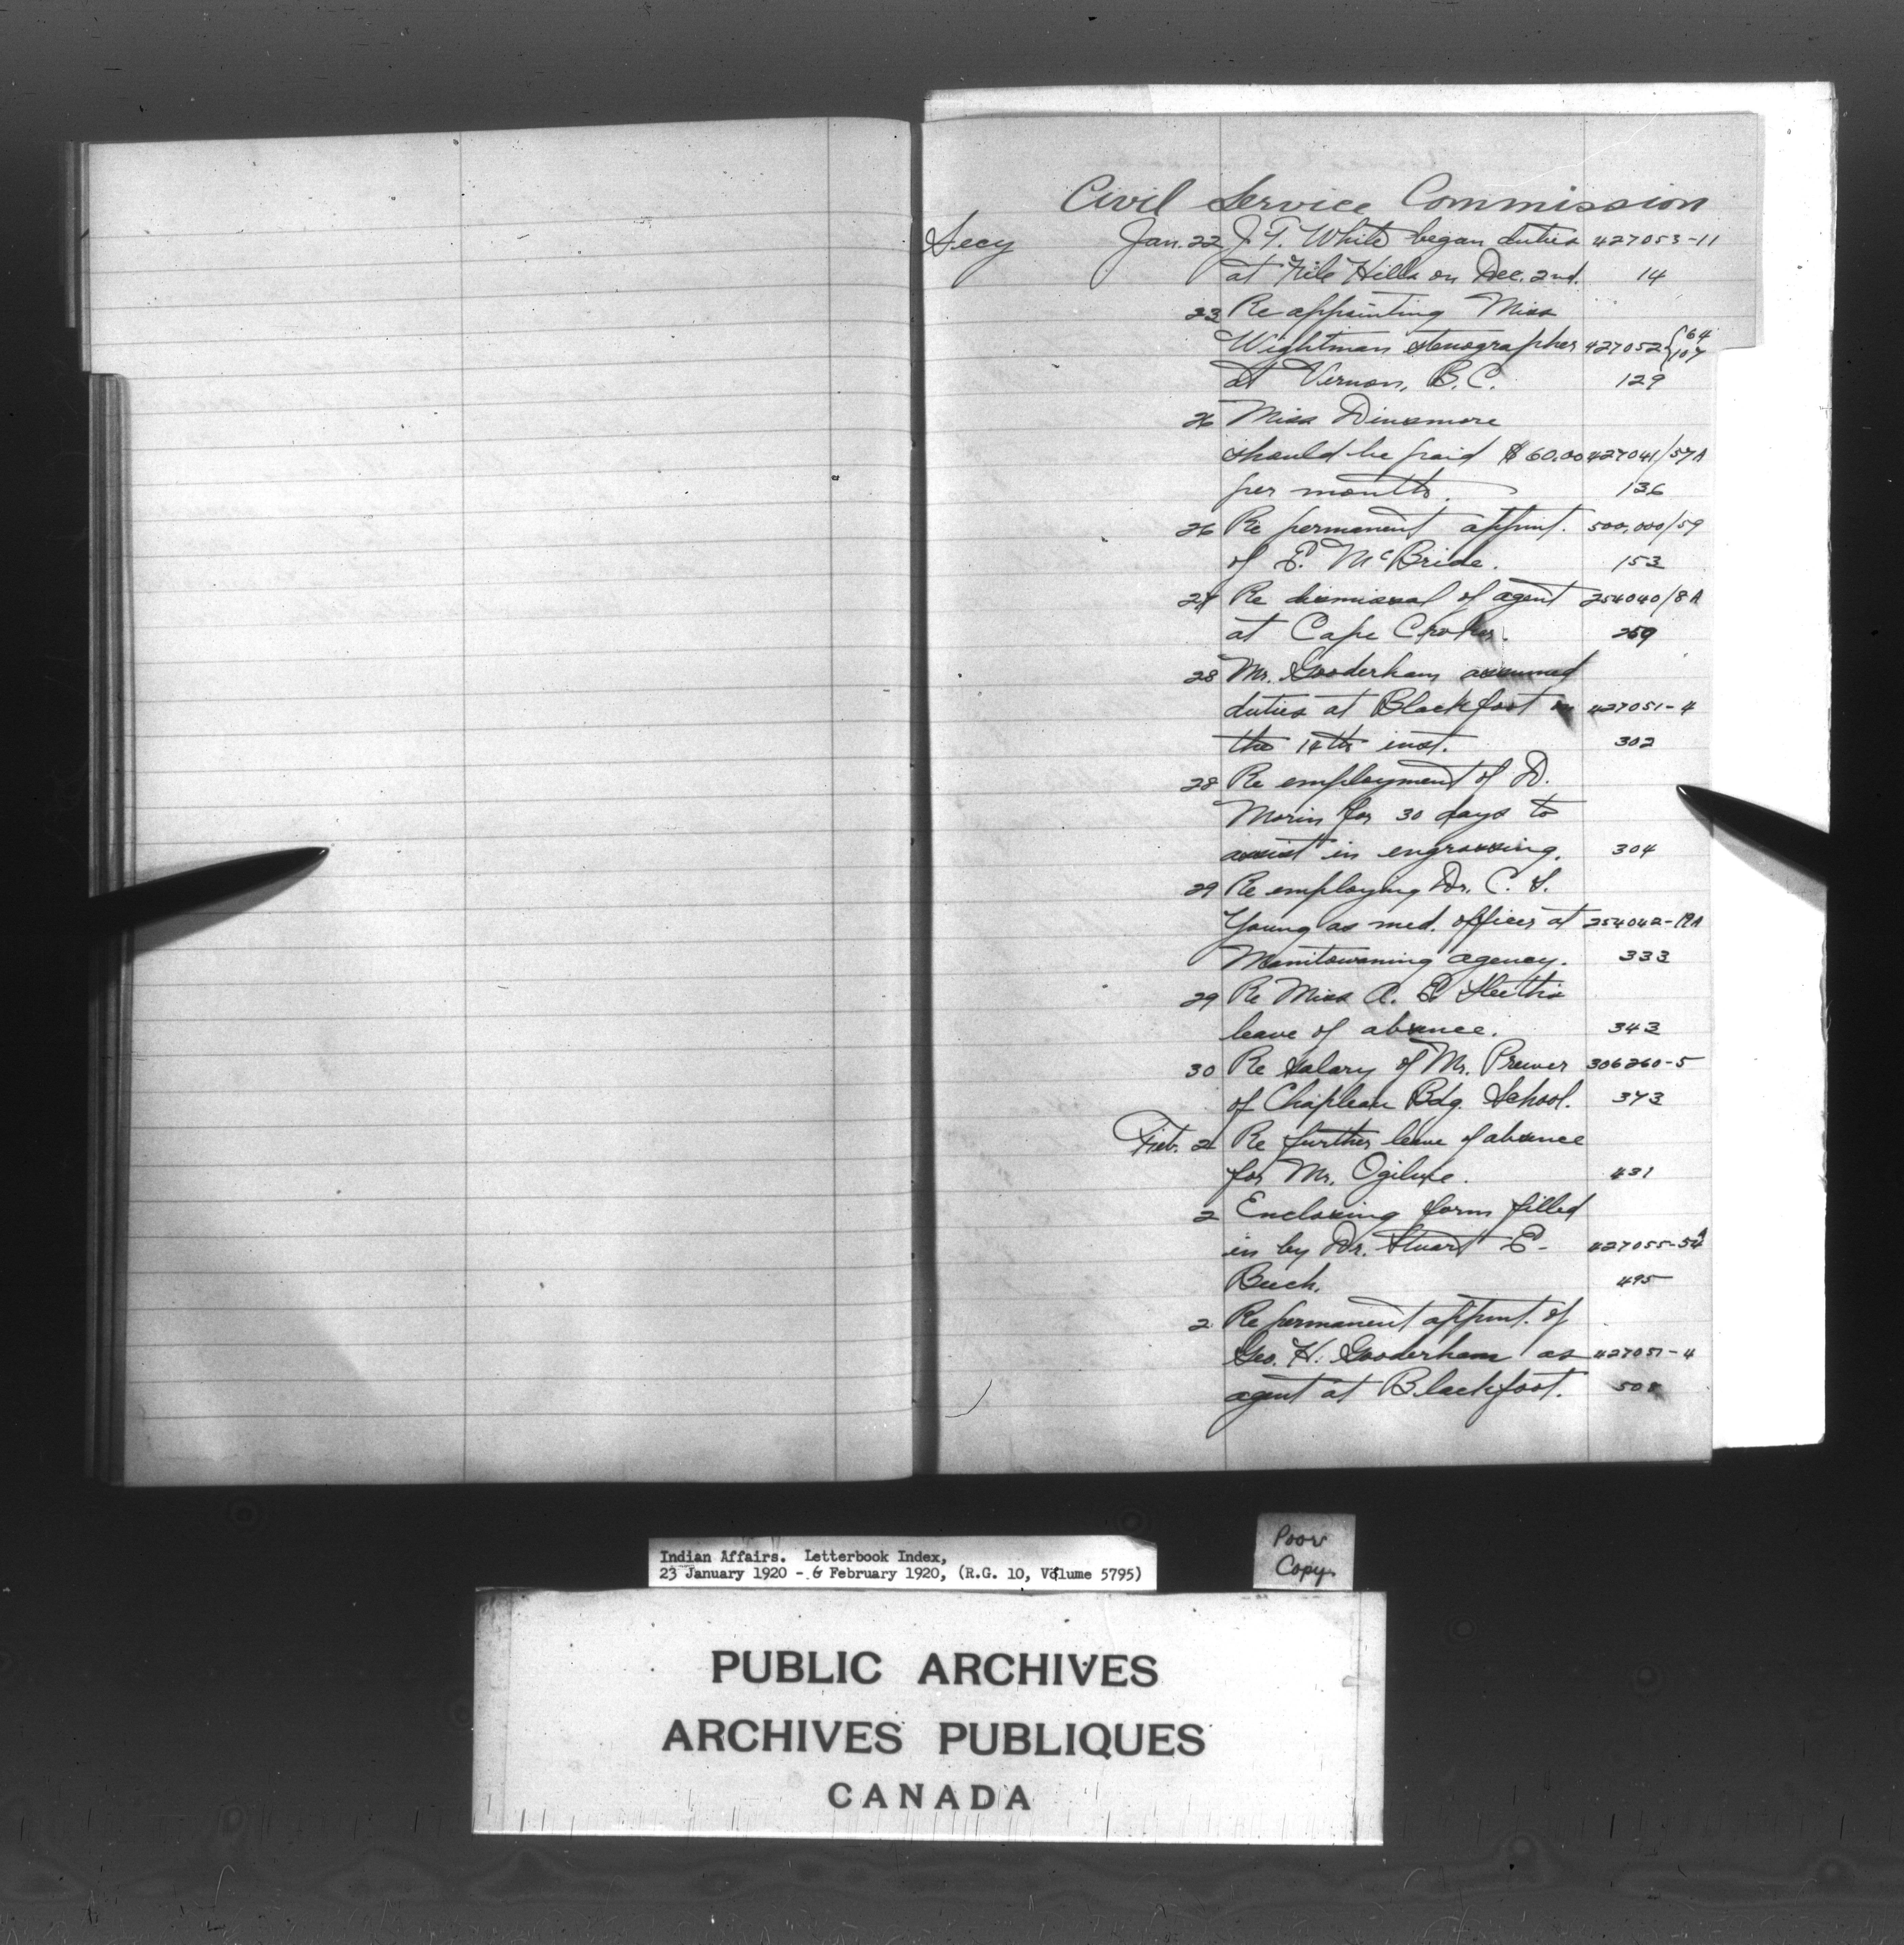 Civil Service Commission
Secy Jan. 22 J. T. White began duties 427053-11
at File Hills on Dec. 2nd. 14
23 Re appointing Miss
Wightman stenographer 427052 { 64 107
at Vernon, B.C. 129
26 Miss Dinsmore
should be paid $60.00 427041/57A
per month. 136
26 Re permanent appmt. 500,000/59
of E. McBride. 153
27 Re dismissal of agent 254040/8A
at Cape Croker. 259
28 Mr. Gooderham assumed
duties at Blackfoot on 427051-4
the inst. 302
28 Re employment of D.
Morin for 30 days to
assist in engrossing. 304
29 Re employing Dr. C. S.
Young as med. officer at 254042-
Manitowaning agency. 333
29 Re Miss A. E.
leave of absence. 343
30 Re salary of Mr. Prewer 306260-5
of Chapleau Bdg. School. 373
Feb. 2 Re further leave of absence
for Mr. Ogilvie. 431
2 Enclosing form filled
in by Dr. Stuart E. 427055-5A
495
2 Re permanent appmt. of
Geo. H. Gooderham as 427051-4
agent at Blackfoot. 508
Indian Affairs. Letterbook Index,
23 January 1920 - 6 February 1920, (R.G. 10, Volume 5795)
Poor
Copy
PUBLIC ARCHIVES
ARCHIVES PUBLIQUES
CANADA